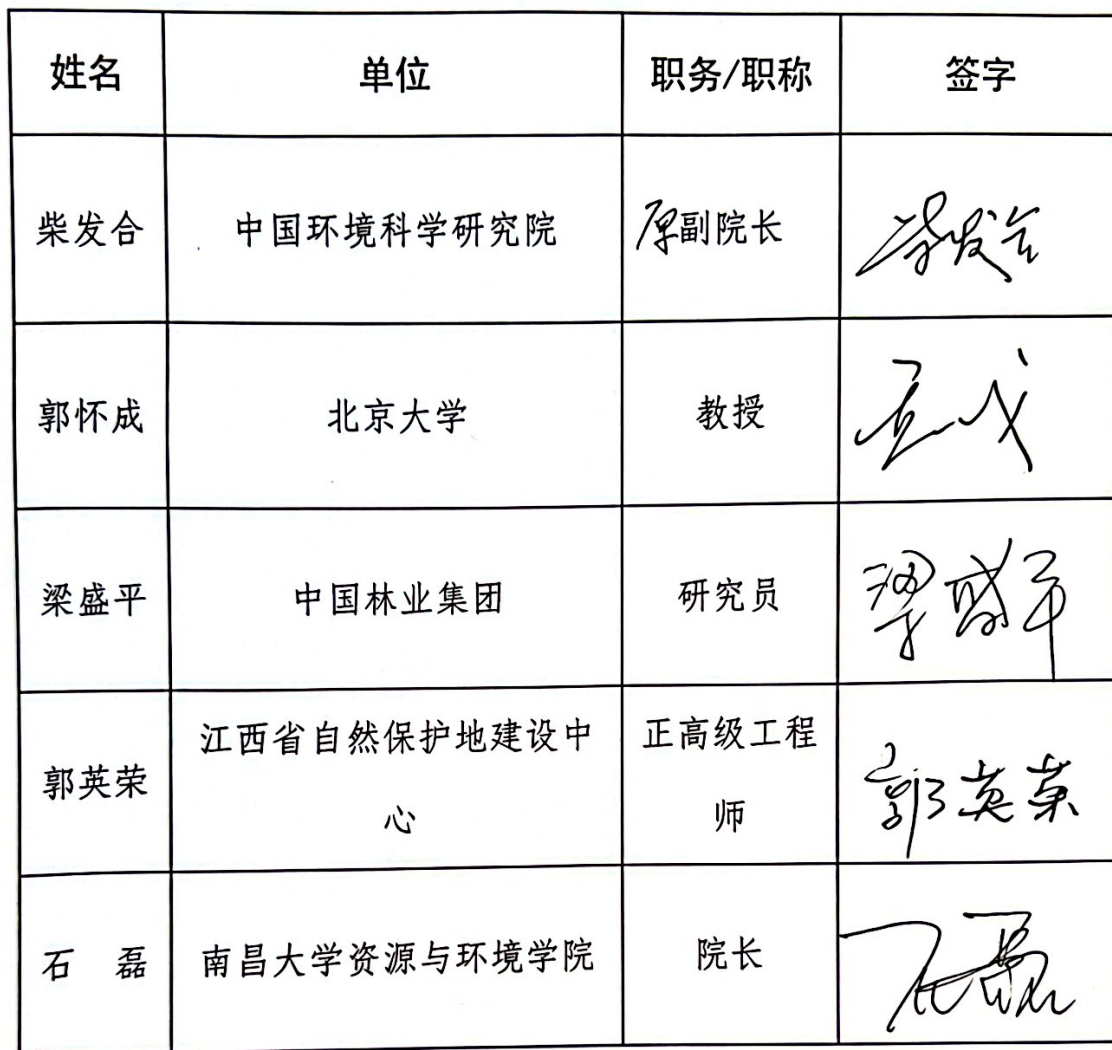 姓名 单位 职务/职称 签字
柴发合 中国环境科学研究院 原副院长 柴发合
郭怀成 北京大学 教授
梁盛平 中国林业集团 研究员 梁盛平
郭英荣 江西省自然保护地建设中 正高级工程 郭英荣
心 师
石 磊 南昌大学资源与环境学院 院长 石磊